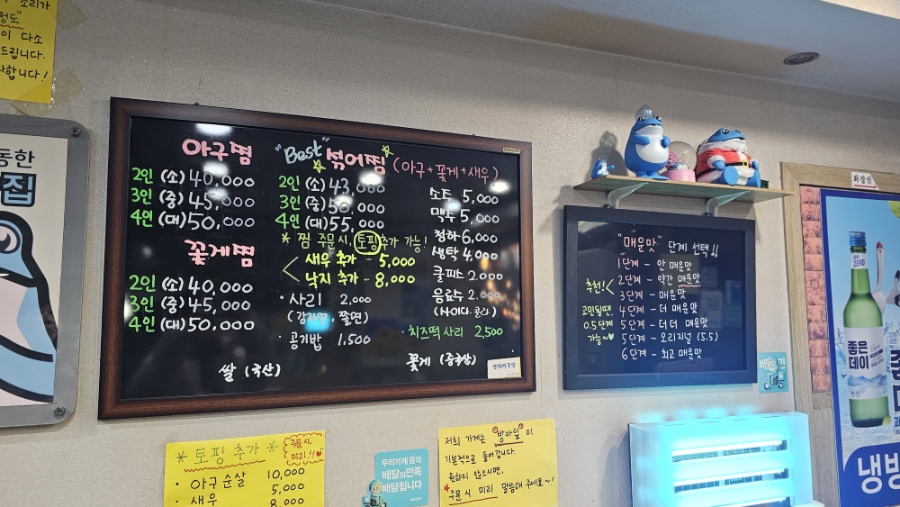 소리가
정도"
이 다소
드립니다.
사합니다!
동한
집
아구찜
2인 (소) 40,000
3인 (중) 45,000
4인 (대) 50,000
꽃게찜
2인 (소) 40,000
3인 (중) 45,000
4인 (대) 50,000
쌀 (국산)
"Best" 섞어찜 (아구+꽃게+새우)
2인 (소) 43,000
3인 (중) 50,000
4인 (대) 55,000
* 찜 주문시, 토핑추가 가능!
새우 추가 - 5,000
낙지 추가 - 8,000
· 사리 2,000
(감자면, 쫄면)
· 공기밥 1,500
소주 5,000
맥주 5,000
청하 6,000
생탁 4,000
쿨피스 2,000
음료수 2,000
(사이다, 콜라)
치즈떡 사리 2,500
꽃게 (중국산)
"매운맛" 단계 선택!!
1단계 - 안 매운맛
2단계 - 약간 매운맛
추천!
3단계 - 매운맛
고민될땐,
0.5단계
가능~♥
4단계 - 더 매운맛
5단계 - 더 더 매운맛
5단계 - 오리지널 (5.5)
6단계 - 최고 매운맛
* 토핑 추가 *
주문시,
미리!!♥
· 아구순살 10,000
· 새우 5,000
8,000
우리가게 음식
배달의민족
배달됩니다
저희 가게는 "방아잎"이
기본적으로 들어갑니다.
원하지 않으시면,
*주문시 미리 말씀해주세요~!
화장실
좋은
데이
냉방